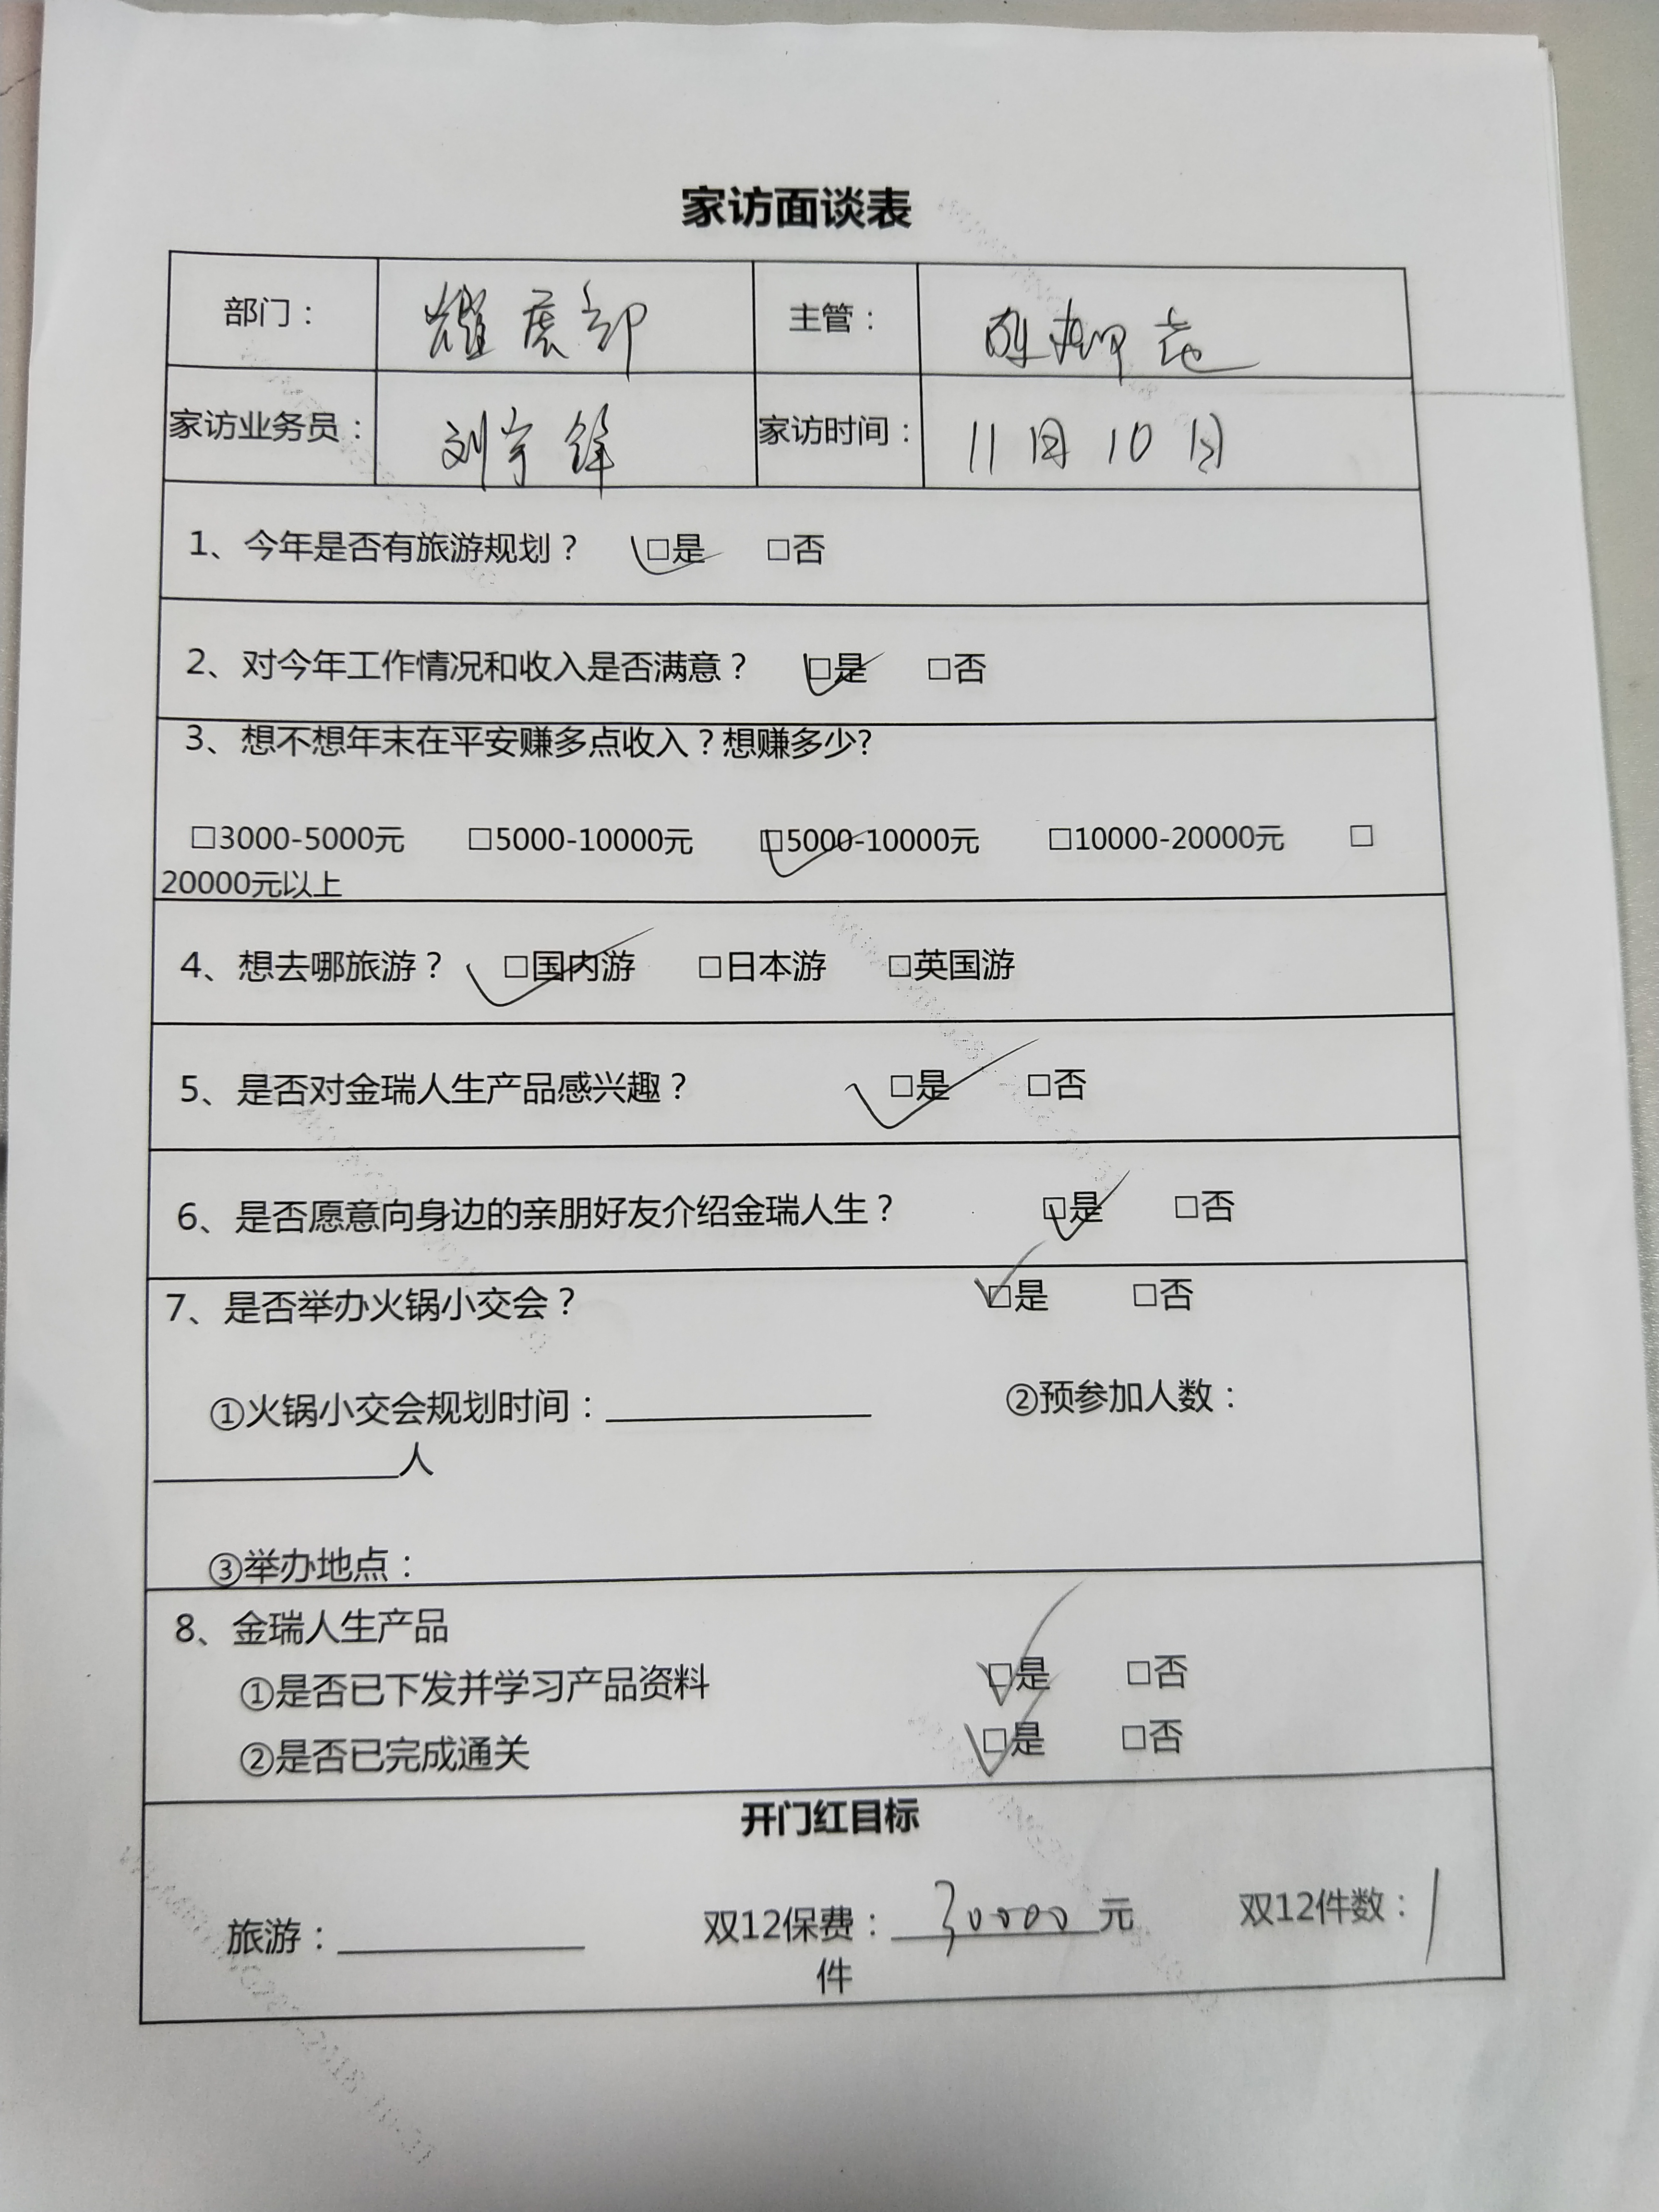 家访面谈表
部门： 耀展部 主管：
家访业务员： 刘宇锋 家访时间： 11月10日
1、今年是否有旅游规划？ □是 □否
2、对今年工作情况和收入是否满意？ □是 □否
3、想不想年末在平安赚多点收入？想赚多少?
□3000-5000元 □5000-10000元 □5000-10000元 □10000-20000元 □
20000元以上
4、想去哪旅游？ □国内游 □日本游 □英国游
5、是否对金瑞人生产品感兴趣？ □是 □否
6、是否愿意向身边的亲朋好友介绍金瑞人生？ □是 □否
7、是否举办火锅小交会？ □是 □否
①火锅小交会规划时间：____________ ②预参加人数：
____________人
③举办地点：
8、金瑞人生产品
①是否已下发并学习产品资料 □是 □否
②是否已完成通关 □是 □否
开门红目标
旅游：____________ 双12保费：30000元 双12件数：1
件